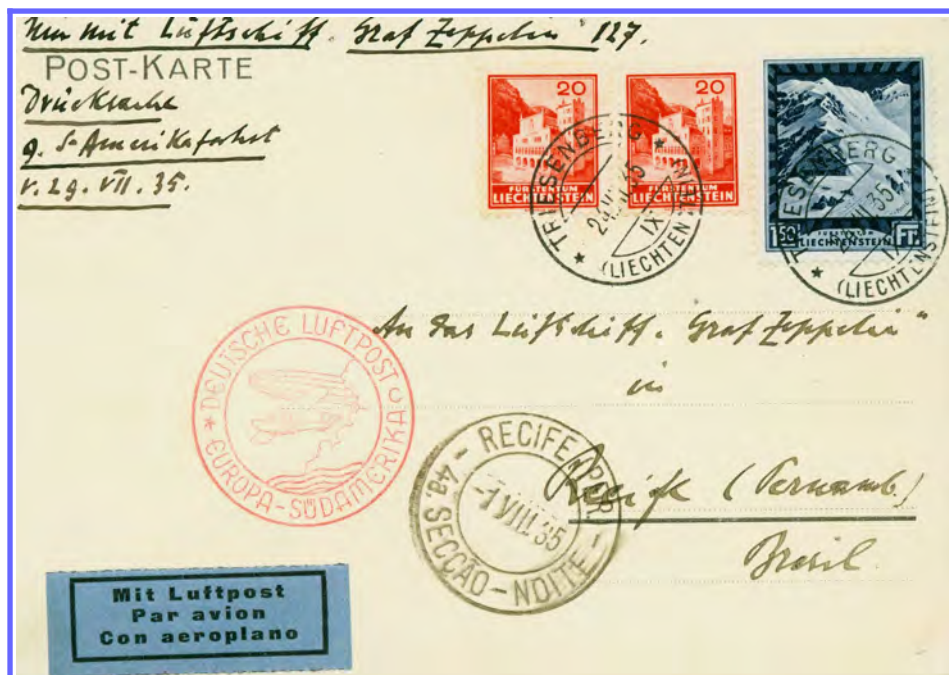 Nur mit Luftschiff „Graf Zeppelin“ 127.
POST-KARTE
Drucksache
9. S-Amerikafahrt
v. 29. VII. 35.
20
FÜRSTENTUM
LIECHTENSTEIN
20
FÜRSTENTUM
LIECHTENSTEIN
★ TRIESENBERG ★
24.VII.35
IX
(LIECHTENSTEIN)
1.50 FÜRSTENTUM LIECHTENSTEIN Fr.
TRIESENBERG
VII.35
★ (LIECHTENSTEIN)
An das Luftschiff „Graf Zeppelin“
in
Recife (Pernamb.)
Brasil
★ DEUTSCHE LUFTPOST
EUROPA-SÜDAMERIKA
- RECIFE (PER) -
-1 VIII 35
4a. SECÇÃO - NOITE -
Mit Luftpost
Par avion
Con aeroplano